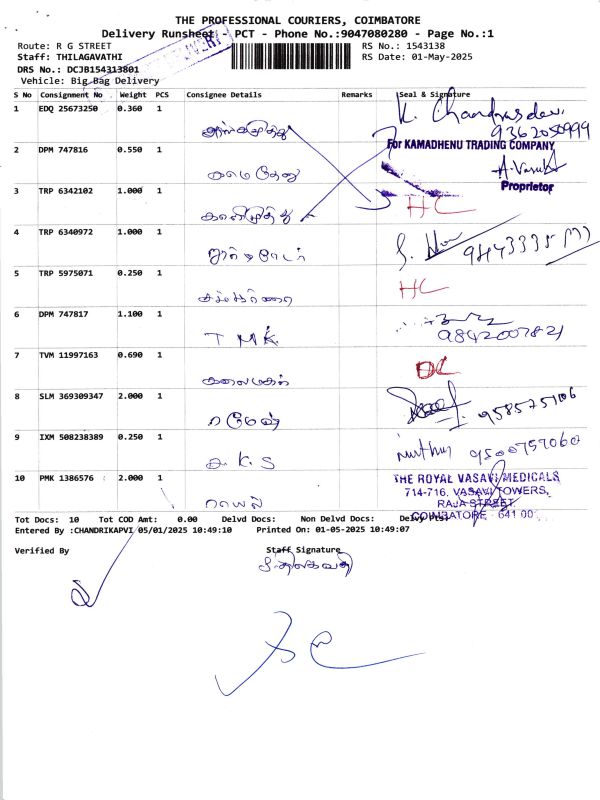 THE PROFESSIONAL COURIERS, COIMBATORE
Delivery Runsheet - PCT - Phone No.:9047080280 - Page No.:1
Route: R G STREET RS No.: 1543138
Staff: THILAGAVATHI RS Date: 01-May-2025
DRS No.: DCJB154313801
Vehicle: Big Bag Delivery
S No Consignment No Weight PCS Consignee Details Remarks Seal & Signature
1 EDQ 25673250 0.360 1
K. Chandrasdevi
9362050999
2 DPM 747816 0.550 1 For KAMADHENU TRADING COMPANY
காமதேனு
A. Vasuki
Proprietor
3 TRP 6342102 1.000 1
காளிமுத்து HC
4 TRP 6340972 1.000 1
5 TRP 5975071 0.250 1
HC
6 DPM 747817 1.100 1
T M K. 9842007821
7 TVM 11997163 0.690 1
கலைமகள் DC
8 SLM 369309347 2.000 1
ரமேஷ்
9 IXM 508238389 0.250 1
A. K. S 9500757060
10 PMK 1386576 2.000 1 THE ROYAL VASAVI MEDICALS
714-716, VASAVI TOWERS,
RAJA STREET
COIMBATORE - 641 00
Tot Docs: 10 Tot COD Amt: 0.00 Delvd Docs: Non Delvd Docs:
Entered By :CHANDRIKAPVI 05/01/2025 10:49:10 Printed On: 01-05-2025 10:49:07
Verified By Staff Signature